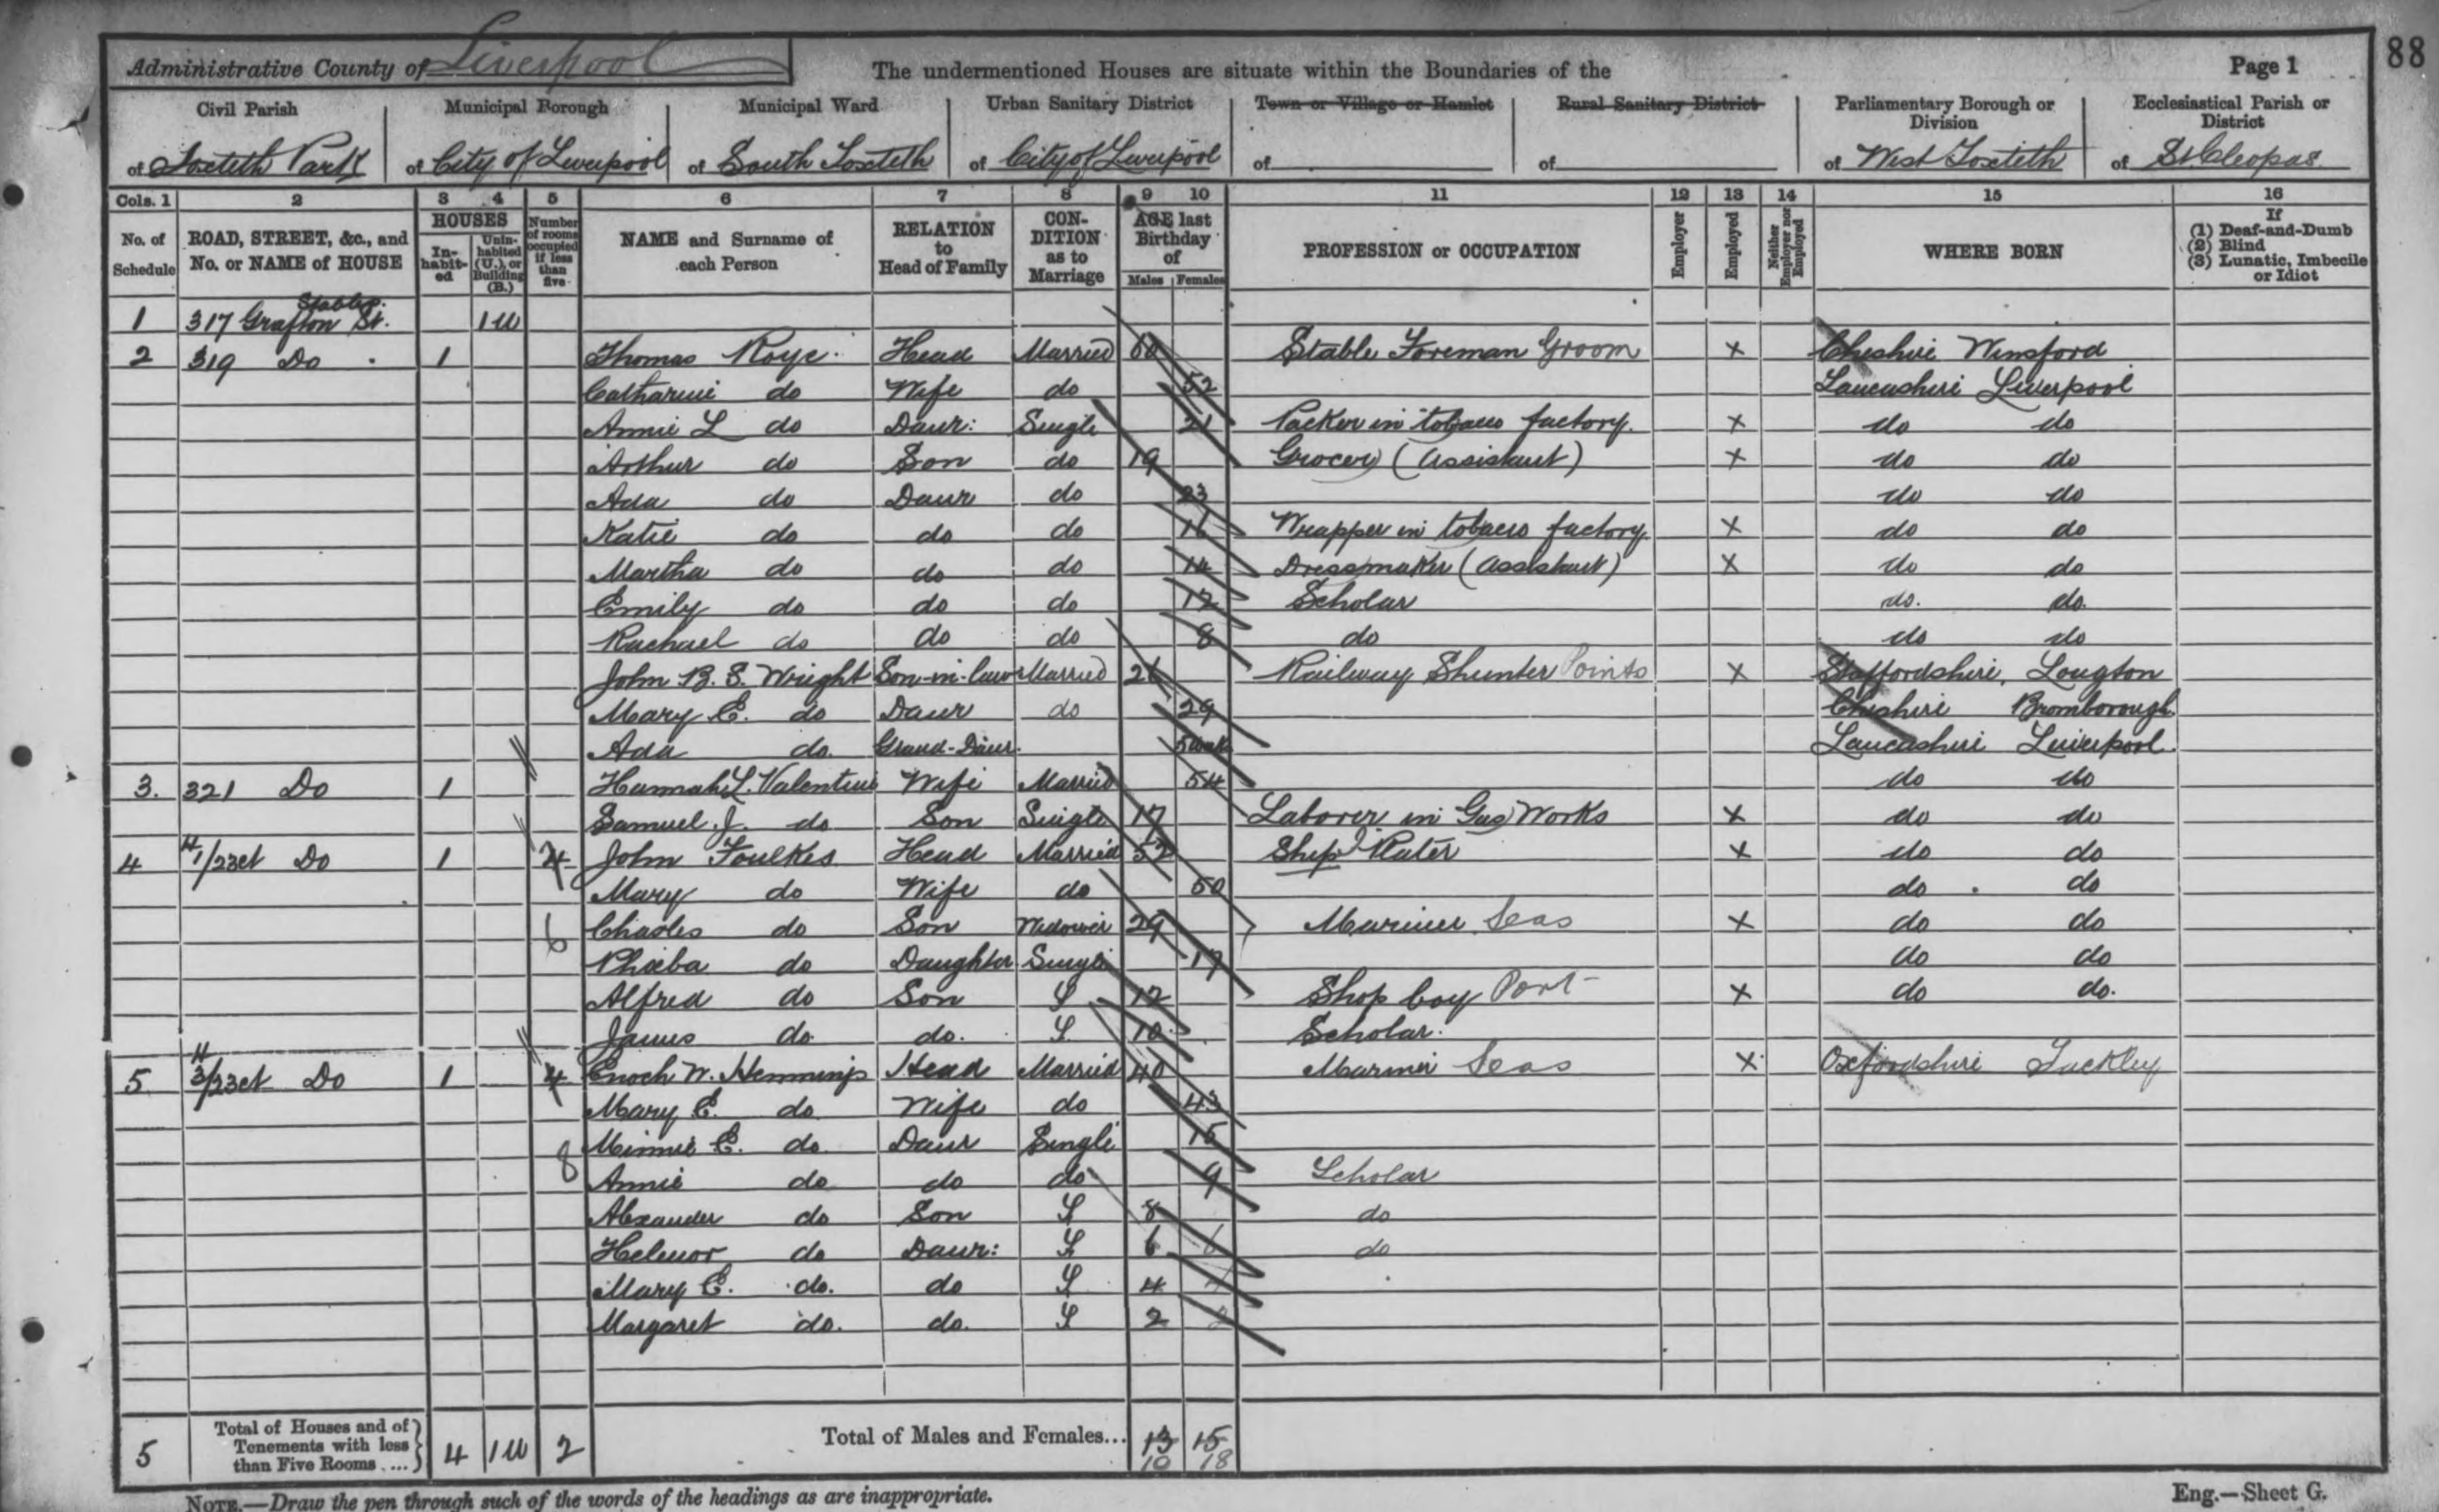 Administrative County of Liverpool The undermentioned Houses are situate within the Boundaries of the Page 1 88
Civil Parish Municipal Borough Municipal Ward Urban Sanitary District Town or Village or Hamlet Rural Sanitary District Parliamentary Borough or Division Ecclesiastical Parish or District
of Toxteth Park of City of Liverpool of South Toxteth of City of Liverpool of of of West Toxteth of St. Cleopas.
Cols. 1 2 3 4 5 6 7 8 9 10 11 12 13 14 15 16
No. of Schedule ROAD, STREET, &c., and No. or NAME of HOUSE HOUSES In-habit-ed Unin-habited (U.), or Building (B.) Number of rooms occupied if less than five NAME and Surname of each Person RELATION to Head of Family CON-DITION as to Marriage AGE last Birthday of Males Females PROFESSION or OCCUPATION Employer Employed Neither Employer nor Employed WHERE BORN If (1) Deaf-and-Dumb (2) Blind (3) Lunatic, Imbecile or Idiot
1 317 Grafton St. Stables. 1 U
2 319 Do 1 Thomas Roye Head Married 60 Stable Foreman Groom X Cheshire Winsford
Catharine do Wife do 52 Lancashire Liverpool
Annie L do Daur: Single 21 Packer in tobacco factory. X do do
Arthur do Son do 19 Grocer (Assistant) X do do
Ada do Daur do 23 do do
Katie do do do 16 Wrapper in tobacco factory X do do
Martha do do do 14 Dressmaker (Assistant) X do do
Emily do do do 12 Scholar do. do.
Rachael do do do 8 do do do
John B. S. Wright Son-in-law Married 26 Railway Shunter Points X Staffordshire, Lougton
Mary E. do Daur do 29 Cheshire Bromborough
Ada do. Grand-Daur. Lancashire Liverpool
3. 321 Do 1 Hannah L. Valentine Wife Married 54 do do
Samuel. J. do Son Single 17 Laborer in Gas Works X do do
4 1/23 Ct Do 1 4 John Foulkes Head Married 52 Ship X do do
Mary do Wife do 50 do do
6 Charles do Son Widower 29 Mariner Seas X do do
Phoeba do Daughter Single 17 do do
Alfred do Son S 12 Shop boy Port X do do.
James do. do. S 10. Scholar.
5 3/23 Ct Do 1 4 Enoch W. Hemmings Head Married 40 Mariner Seas X Oxfordshire Tackley
Mary E. do. Wife do 43
Minnie E. do. Daur Single 15
8 Annie do do do 9 Scholar
Alexander do Son S 8 do
Helenor do Daur: S 6 6 do
Mary E. do. do S 4
Margaret do. do. S 2 2
5 Total of Houses and of Tenements with less than Five Rooms .... 4 1 U 2 Total of Males and Females... 13 15
10 18
NOTE.—Draw the pen through such of the words of the headings as are inappropriate. Eng.—Sheet G.